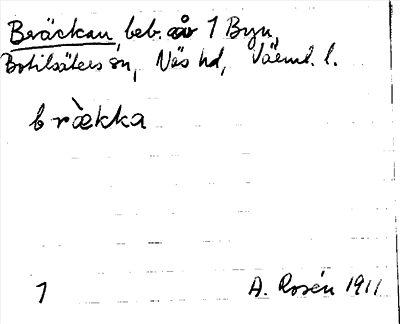 Bräckan, beb. av 1 Byn,
Botilsäters sn, Näs hd, Värml. l.
bræ̀kka
1 A. Rosén 1911